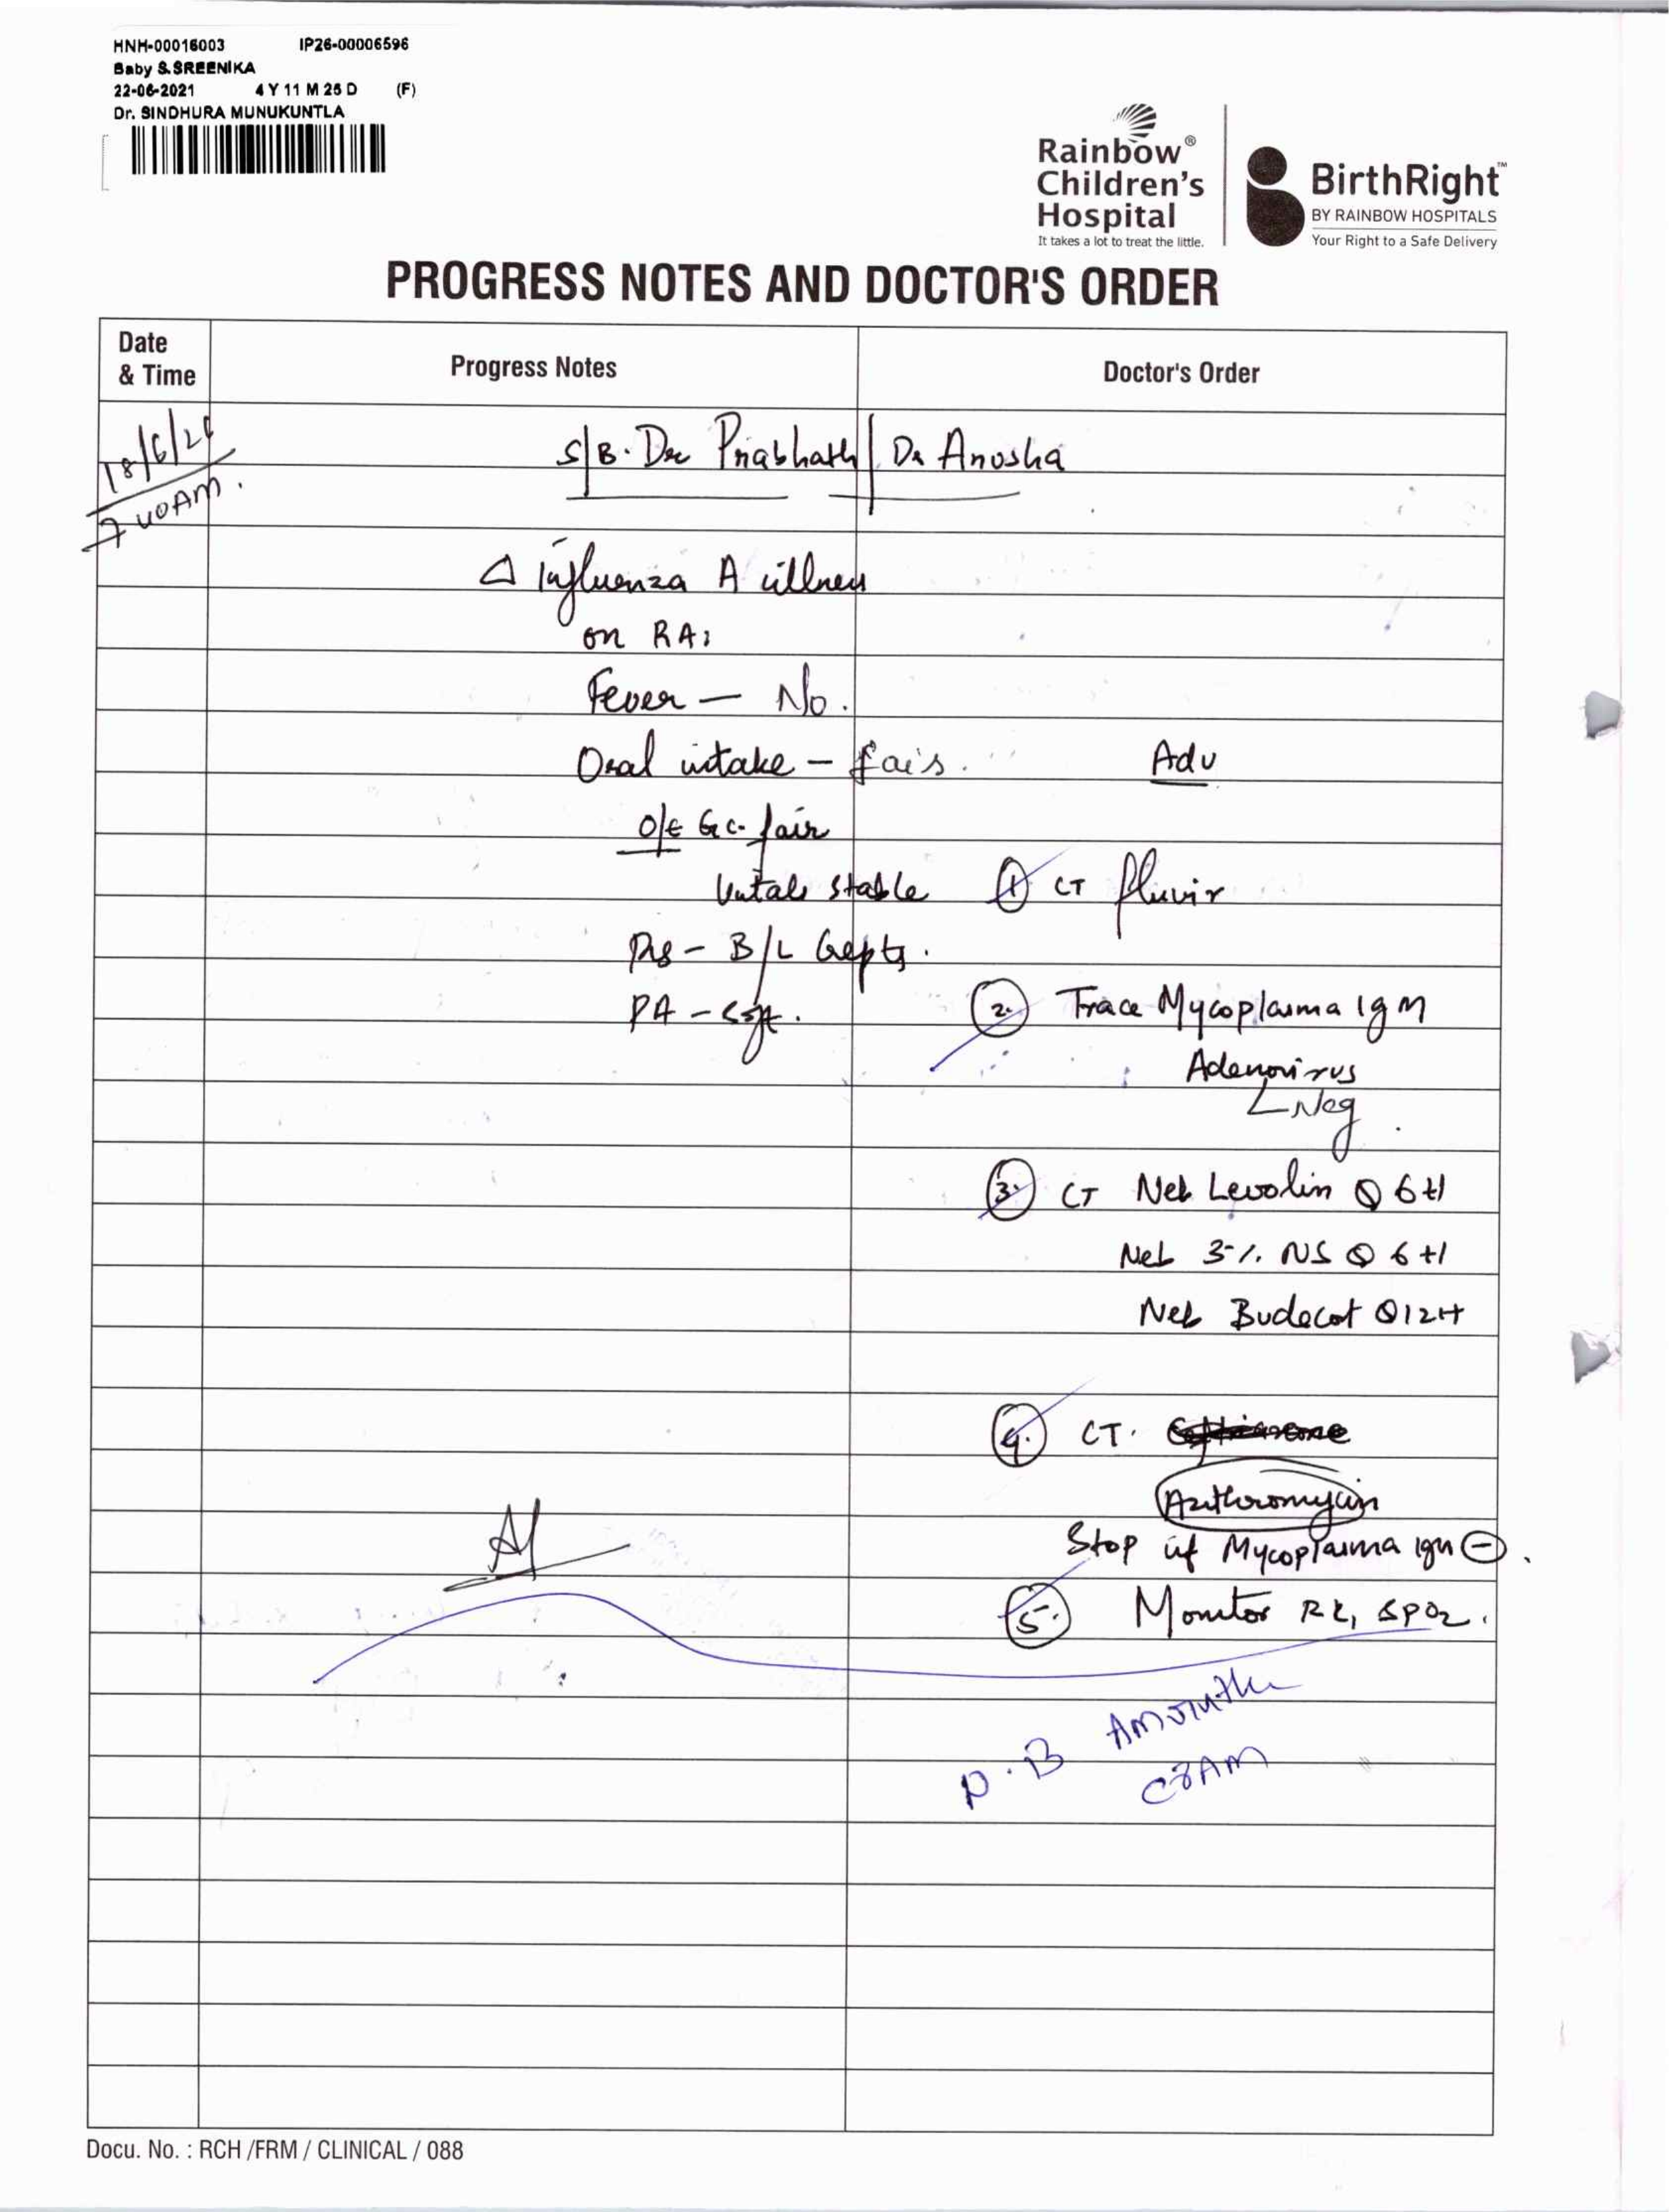 HNH-00016003 IP26-00006596
Baby S.SREENIKA
22-06-2021 4 Y 11 M 26 D (F)
Dr. SINDHURA MUNUKUNTLA
Rainbow®
Children's
Hospital
It takes a lot to treat the little.
BirthRight™
BY RAINBOW HOSPITALS
Your Right to a Safe Delivery
PROGRESS NOTES AND DOCTOR'S ORDER
Date
& Time
Progress Notes
Doctor's Order
18/6/26
7:40AM.
S/B. Dr Prabhath / Dr Anusha
Δ Influenza A illness
on RA:
Fever - No.
Oral intake - fair.
Adv
O/E GC- fair
Vitals stable
① CT fluvir
RS - B/L Gept.
PA - soft.
② Trace Mycoplasma IgM
Adenovirus
Neg
③ CT Neb Levolin Q 6H
Neb 3% NS Q 6H
Neb Budecot Q12H
④ CT.
Azithromycin
Stop if Mycoplasma IgM ⊖.
⑤ Monitor RR, SPO2.
8AM
Docu. No. : RCH /FRM / CLINICAL / 088